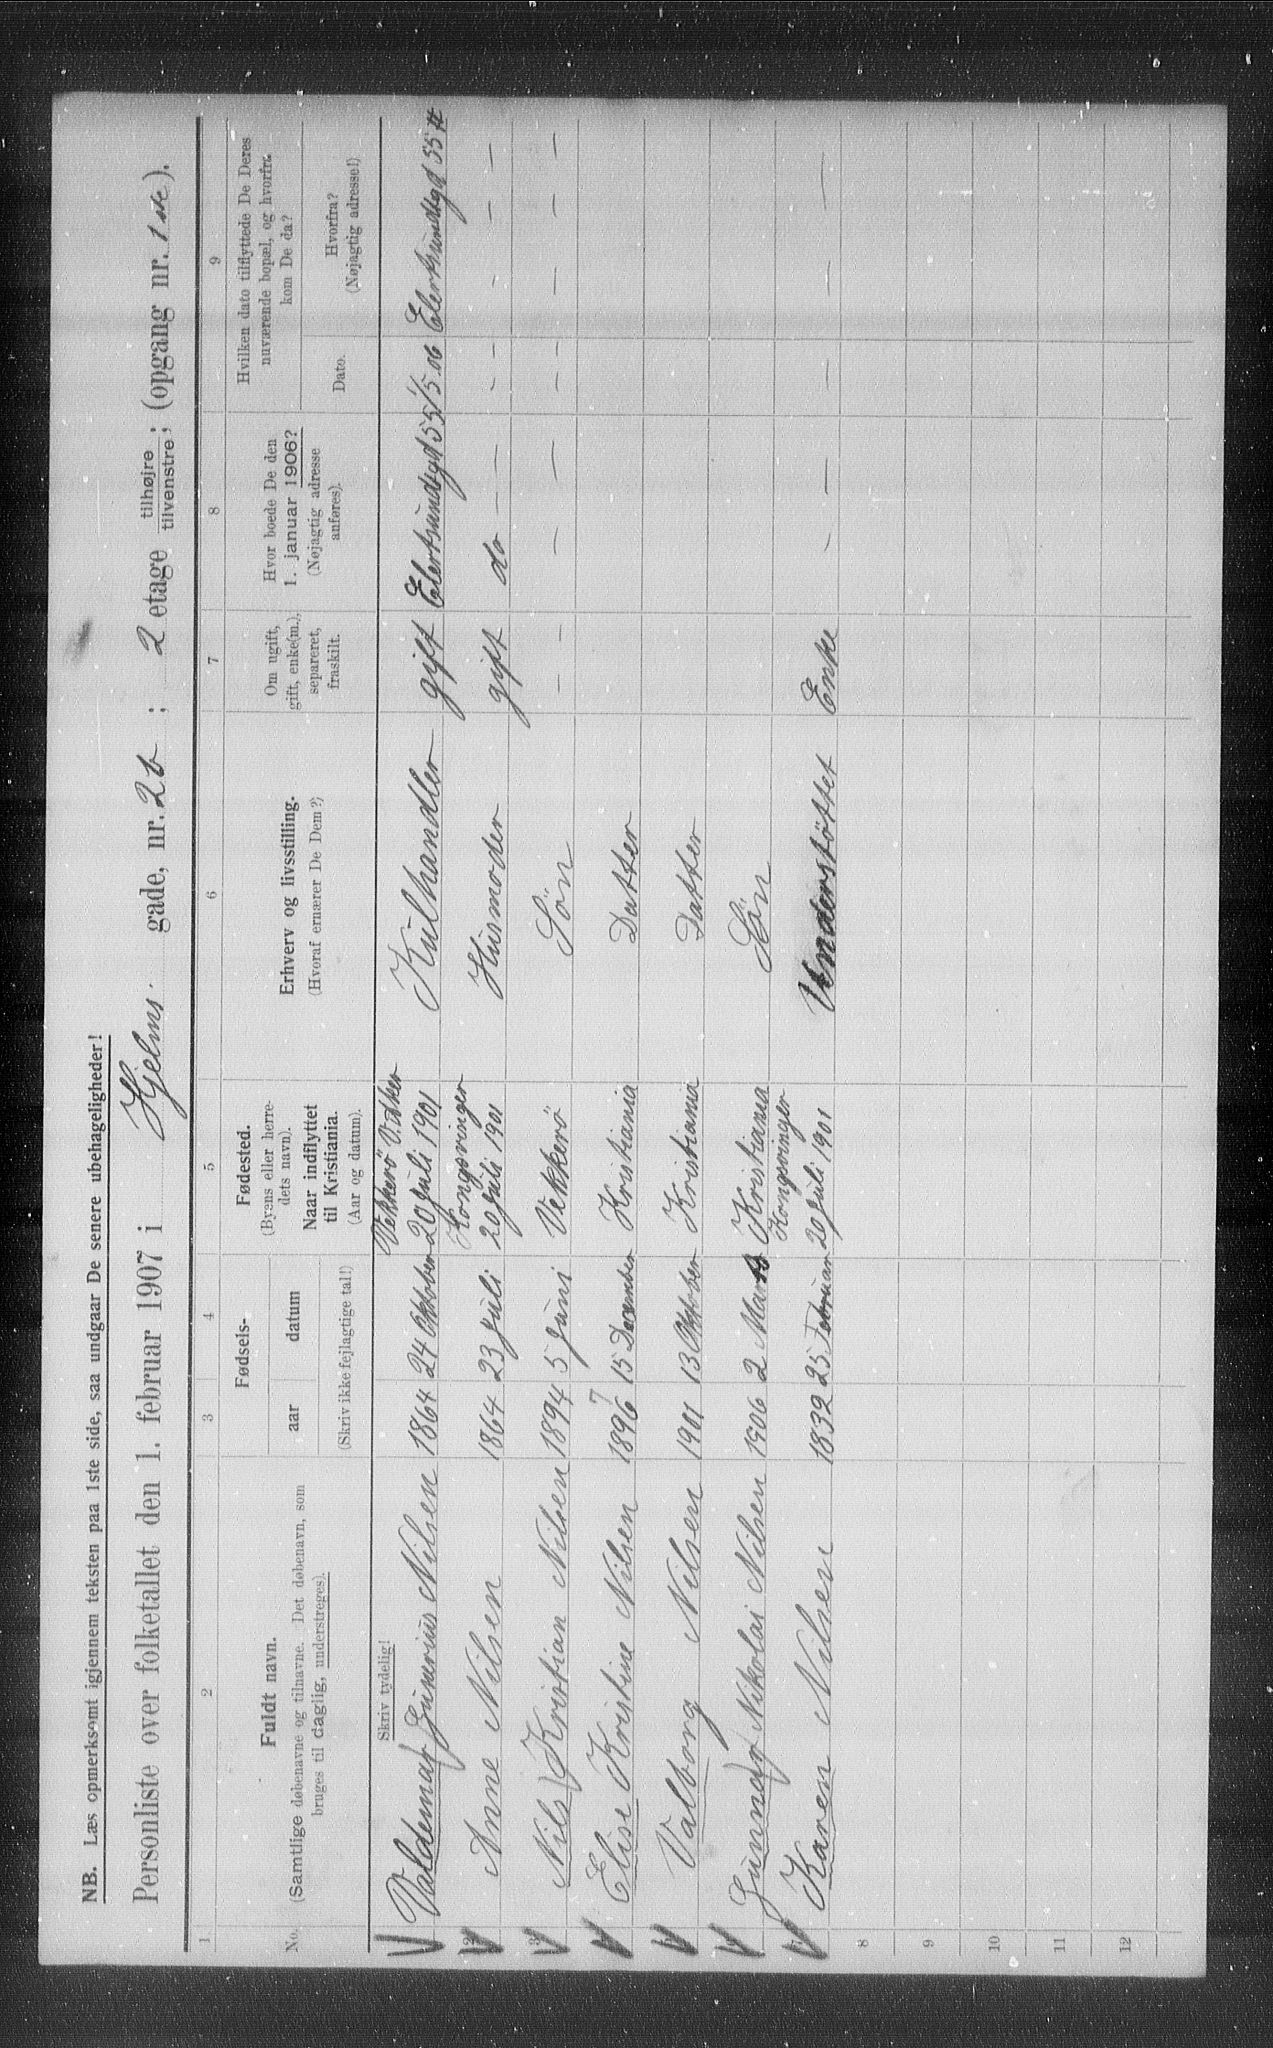 NB. Læs opmerksomt igjennem teksten paa 1ste side, saa undgaar De senere ubehageligheder!
Personliste over folketallet den 1. februar 1907 i Hjelms gade, nr. 2b ; 2 etage tilhøjre tilvenstre ; (opgang nr. 1 ste ).
1 2 3 4 5 6 7 8 9
No.
Fuldt navn.
(Samtlige døbenavne og tilnavne. Det døbenavn, som
bruges til daglig, understreges).
Fødsels-
aar datum
(Skriv ikke fejlagtige tal!)
Fødested.
(Byens eller herre-
dets navn).
Naar indflyttet
til Kristiania.
(Aar og datum).
Erhverv og livsstilling.
(Hvoraf ernærer De Dem?)
Om ugift,
gift, enke(m.),
separeret,
fraskilt.
Hvor boede De den
1. januar 1906?
(Nøjagtig adresse
anføres).
Hvilken dato tilflyttede De Deres
nuværende bopæl, og hvorfra
kom De da?
Dato.
Hvorfra?
(Nøjagtig adresse!)
Skriv tydelig!
Vekkerö V. Aker
Valdemar Gunerius Nilsen 1864 24 Oktober 20 Juli 1901 Kulhandler gift Eilertsundtsgd 55 1/5.06 Eilertsundtsgd 55 II
Kongsvinger
2 Anne Nilsen 1864 23 Juli 20 Juli 1901 Husmoder gift do — — - - - — —
3 Nils Kristian Nilsen 1894 5 Juni Vekkerö Sön - - - — - - — — —
Elise Kristine Nilsen 1896 7 15 December Kristiania Datter
Valborg Nilsen 1901 13 Oktober Kristiania Datter
Gunnar Nikolai Nilsen 1906 2 Marts Kristiania Sön
Kongsvinger
7 Karen Nilsen 1832 25 Februar 20 Juli 1901 Understöttet Enke - — — — — —
8
9
10
11
12